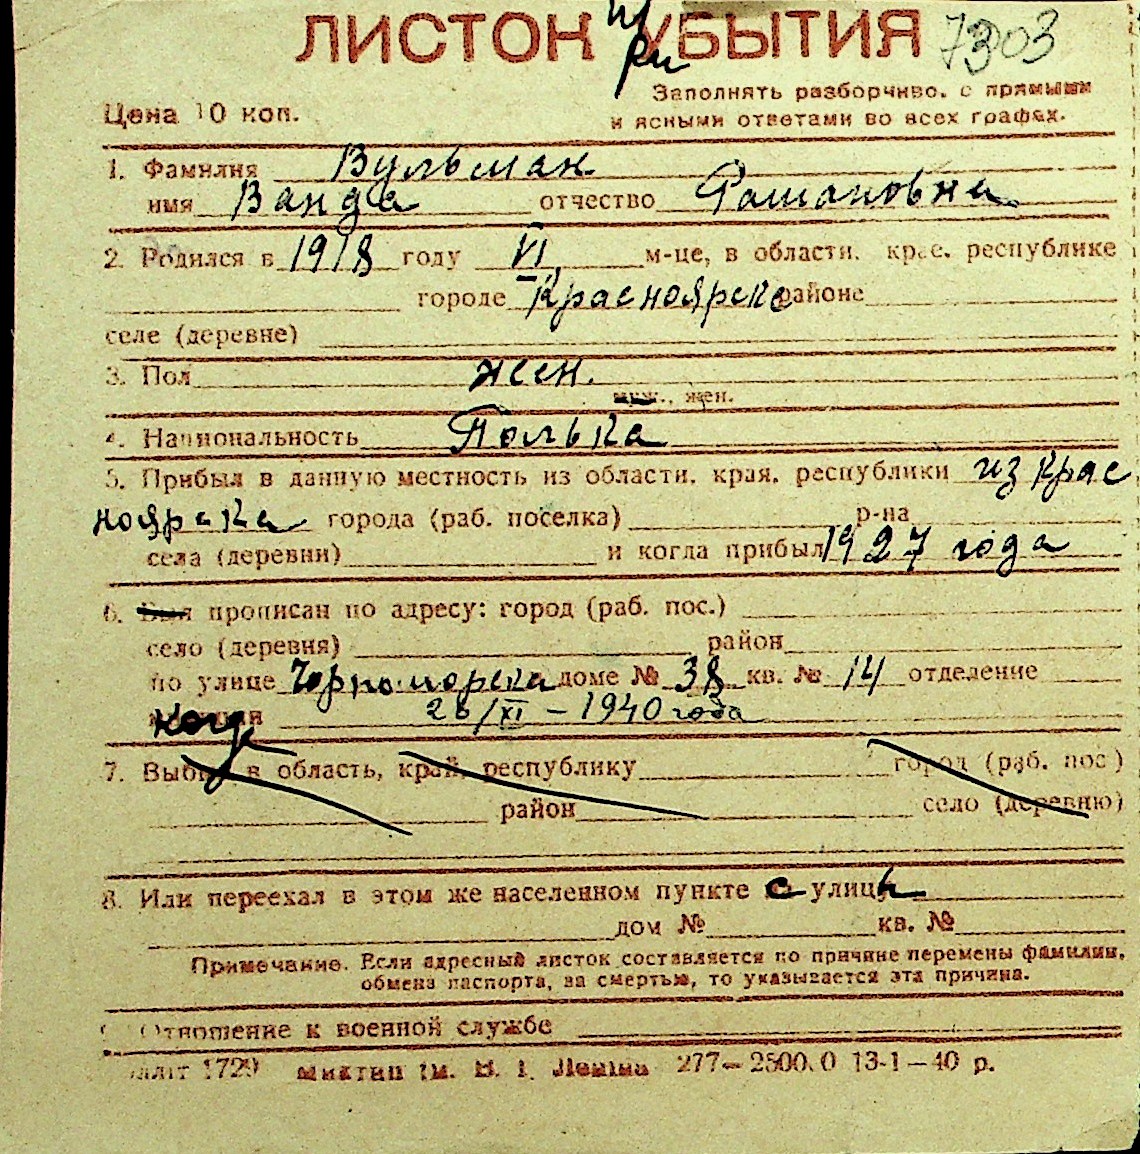 ЛИСТОК УБЫТИЯ 7303
При
Заполнять разборчиво, с прямыми
Цена 10 коп. и ясными ответами во всех графах.
1. Фамилия Вульман
имя Ванда отчество Романовна
2. Родился в 1918 году VI м-це, в области, крае, республике
городе Красноярске районе
селе (деревне)
3. Пол жен.
муж., жен.
4. Национальность Полька
5. Прибыл в данную местность из области, края, республики из Крас
ноярска города (раб. поселка) р-на
села (деревни) и когда прибыл 1927 года
6. Был прописан по адресу: город (раб. пос.)
село (деревня) район
по улице Чорноморска доме № 38 кв. № 14 отделение
когд 26/XI – 1940 года
7. Выбыл в область, край, республику город (раб. пос.)
район село (деревню)
8. Или переехал в этом же населенном пункте с улицы
дом № кв. №
Примечание. Если адресный листок составляется по причине перемены фамилии,
обмена паспорта, за смертью, то указывается эта причина.
Отношение к военной службе
1729 277—2500.0 13-1—40 р.